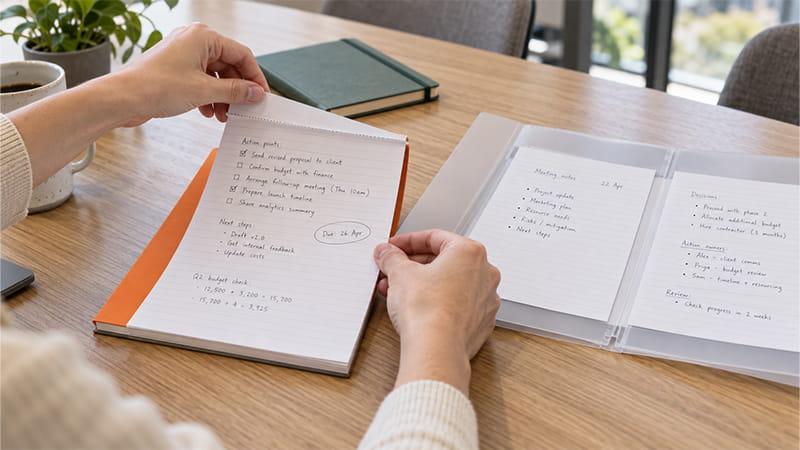 Action points:
☑ Send revised proposal to client
☐ Confirm budget with finance
☐ Arrange follow-up meeting (Thu 10am)
☑ Prepare launch timeline
☐ Share analytics summary
Next steps
• Draft v2.0
• Get internal feedback
• Update costs
Due: 26 Apr
Q2 budget check
- 12,500 + 3,200 = 15,700
- 15,700 ÷ 4 = 3,925
Meeting notes
22 Apr
• Project update
• Marketing plan
• Resource needs
• Risks / mitigation
• Next steps
Decisions:
• Proceed with phase 2
• Allocate additional budget
• Hire contractor (3 months)
Action owners:
• Alex - client comms
• Priya - budget review
• Sam - timeline + resourcing
Review:
• Check progress in 2 weeks